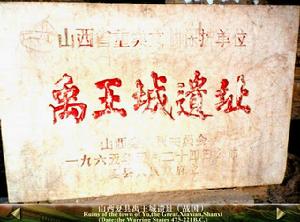 山西省重点文物保护单位
禹王城遗址
山西省
一九六五年五月二十四日
山西夏县禹王城遗址（战国）
Ruins of the town of Yu,the Great,Xiaxian,Shanxi
(Date:the Warring States 475-221B.C.)